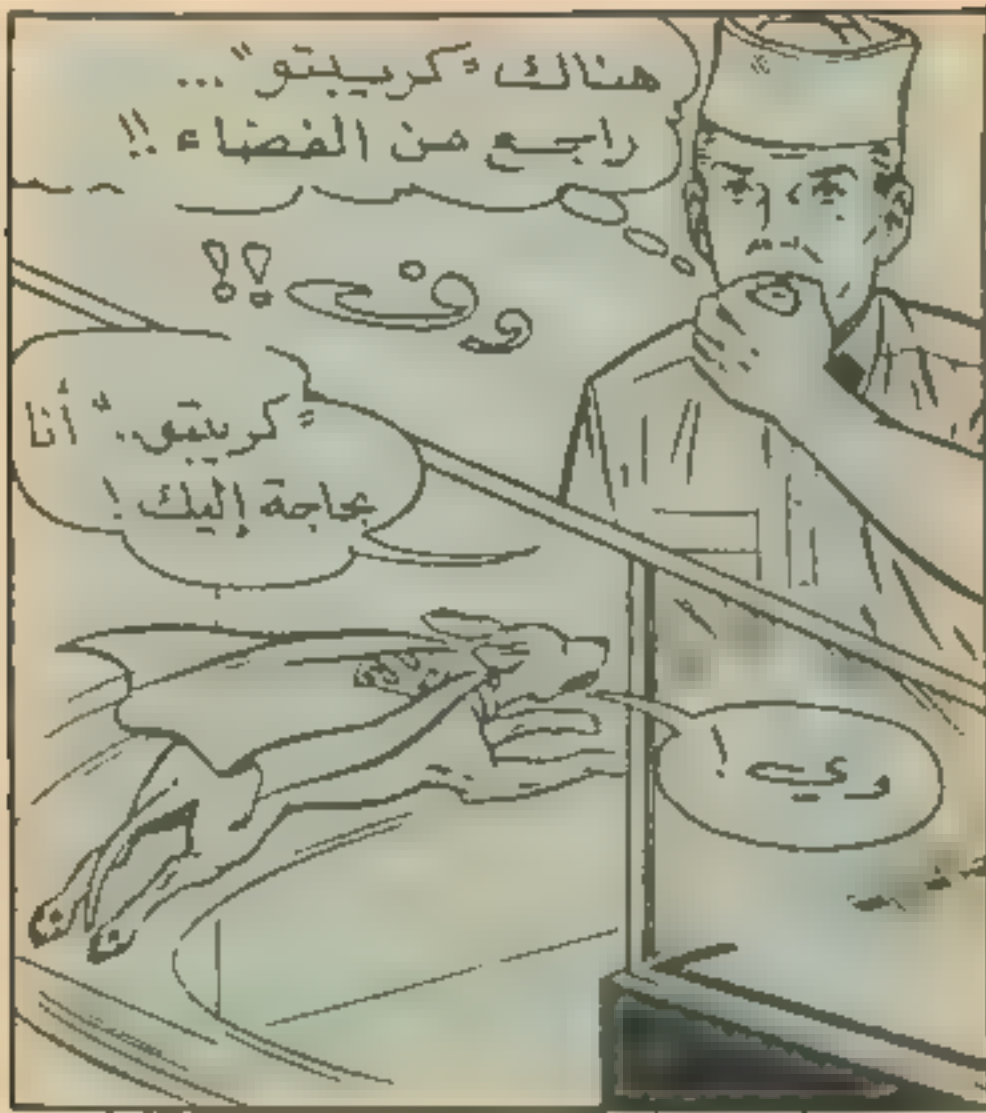 هناك "كريبتو"...
راجع من الفضاء !!
وفت !!
"كريبتو.." أنا
بحاجة إليك !